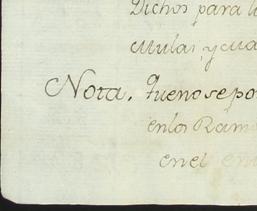 Dichos para l
Mulas, y cua
Nota. Que no se po
en los Ram
en el en